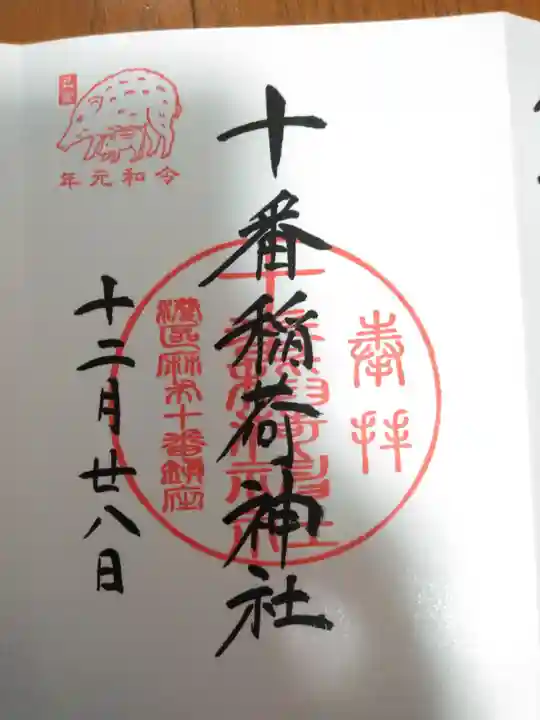 奉拝
十番稲荷神社
港区麻布十番鎮座
己亥
令和元年
十二月廿八日